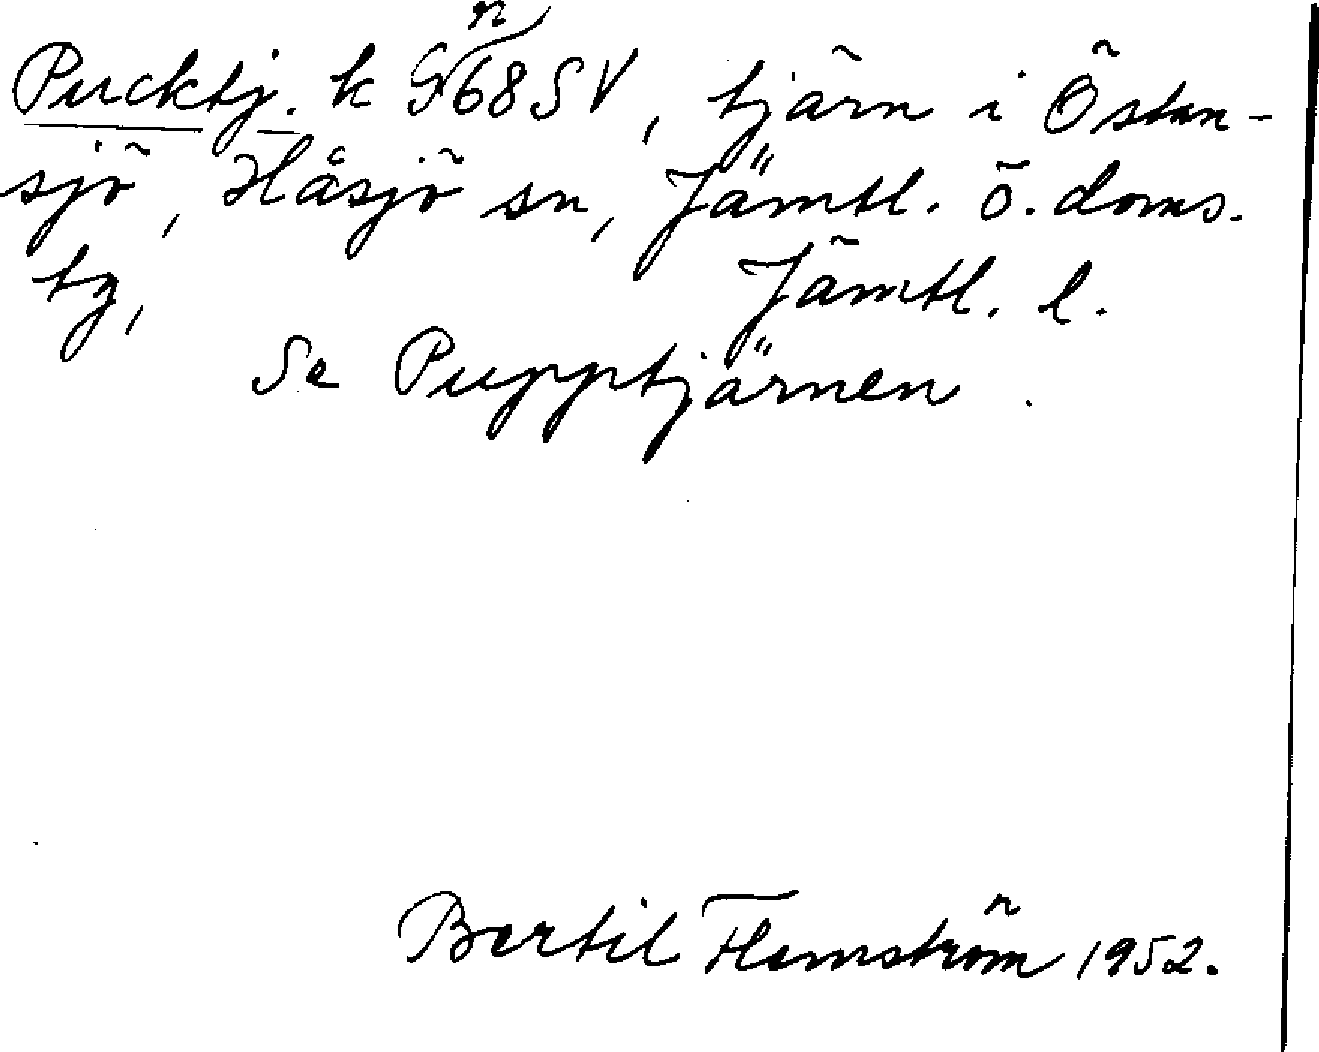 Pucktj. k Gn68SV, tjärn i Östan-
sjö, Håsjö sn, Jämtl. ö. doms.
tg, Jämtl. l.
Se Pupptjärnen.
Bertil Flemström 1952.